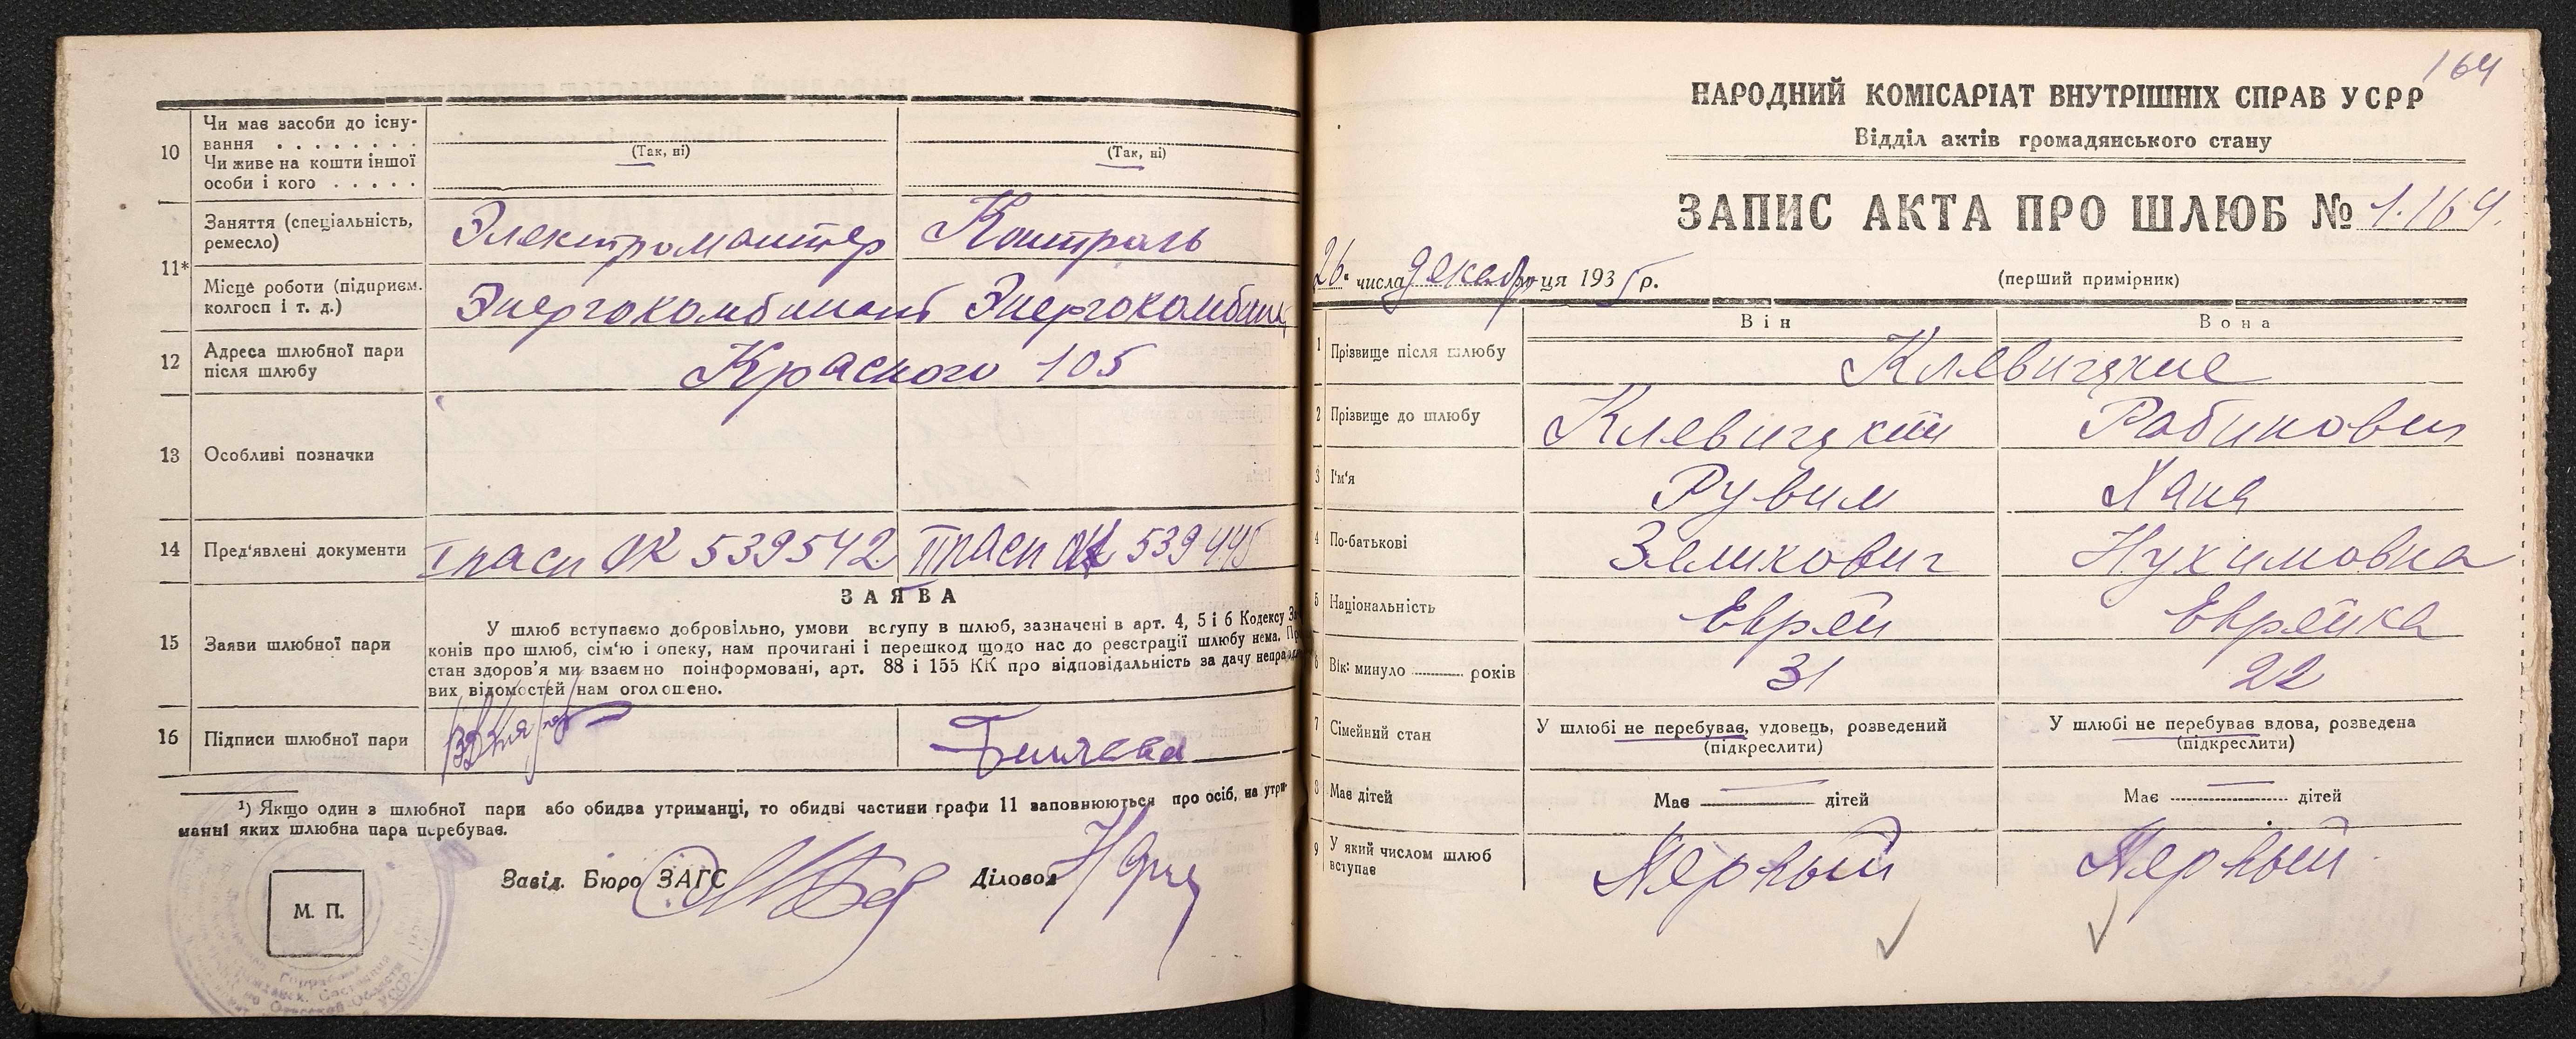 10
Чи має засоби до існу-
вання . . . . . . . .
(Так, ні)
(Так, ні)
Чи живе на кошти іншої
особи і кого . . . . .
11*
Заняття (спеціальність,
ремесло)
Электромонтер
Контроль
Місце роботи (підприєм.
колгосп і т. д.)
Энергокомбинат
Энергокомбинат
12
Адреса шлюбної пари
після шлюбу
Красного 105
13
Особливі позначки
14
Пред'явлені документи
І пасп ОК 539542
ІІ пасп ОК 539445
15
Заяви шлюбної пари
ЗАЯВА
У шлюб вступаємо добровільно, умови вступу в шлюб, зазначені в арт. 4, 5 і 6 Кодексу За-
конів про шлюб, сім'ю і опеку, нам прочитані і перешкод щодо нас до реєстрації шлюбу нема. Про
стан здоров'я ми взаємно поінформовані, арт. 88 і 155 КК про відповідальність за дачу неправди-
вих відомостей нам оголошено.
16
Підписи шлюбної пари
¹) Якщо один з шлюбної пари або обидва утриманці, то обидві частини графи 11 заповнюються про осіб, на утри-
манні яких шлюбна пара перебуває.
Завід. Бюро ЗАГС
Діловод
М. П.
164
НАРОДНИЙ КОМІСАРІАТ ВНУТРІШНІХ СПРАВ УСРР
Відділ актів громадянського стану
ЗАПИС АКТА ПРО ШЛЮБ № 1.164.
26. числа декабр ця 1935 р.
(перший примірник)
Він
Вона
1
Прізвище після шлюбу
Клевицкие
2
Прізвище до шлюбу
Клевицкий
Рабинович
3
Ім'я
Рувим
Хана
4
По-батькові
Зеликович
Нухимовна
5
Національність
Еврей
Еврейка
6
Вік: минуло ........ років
31
22
7
Сімейний стан
У шлюбі не перебував, удовець, розведений
(підкреслити)
У шлюбі не перебував вдова, розведена
(підкреслити)
8
Має дітей
Має ........ дітей
Має ........ дітей
9
У який числом шлюб
вступає
Первый
Первый